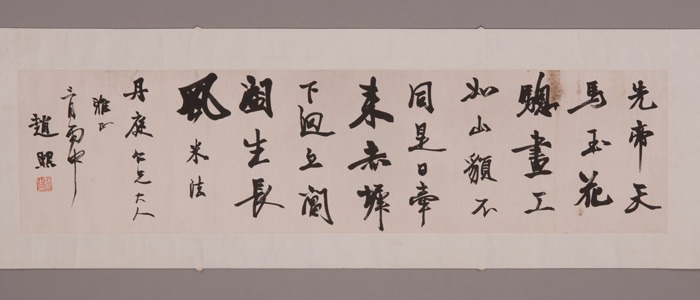 先帝天
馬玉花
驄畫工
如山䫉不
同是日牽
來赤墀
下迴立閶
闔生長
風米法
丹庭仁兄大人
雅正
月丙申
趙熙